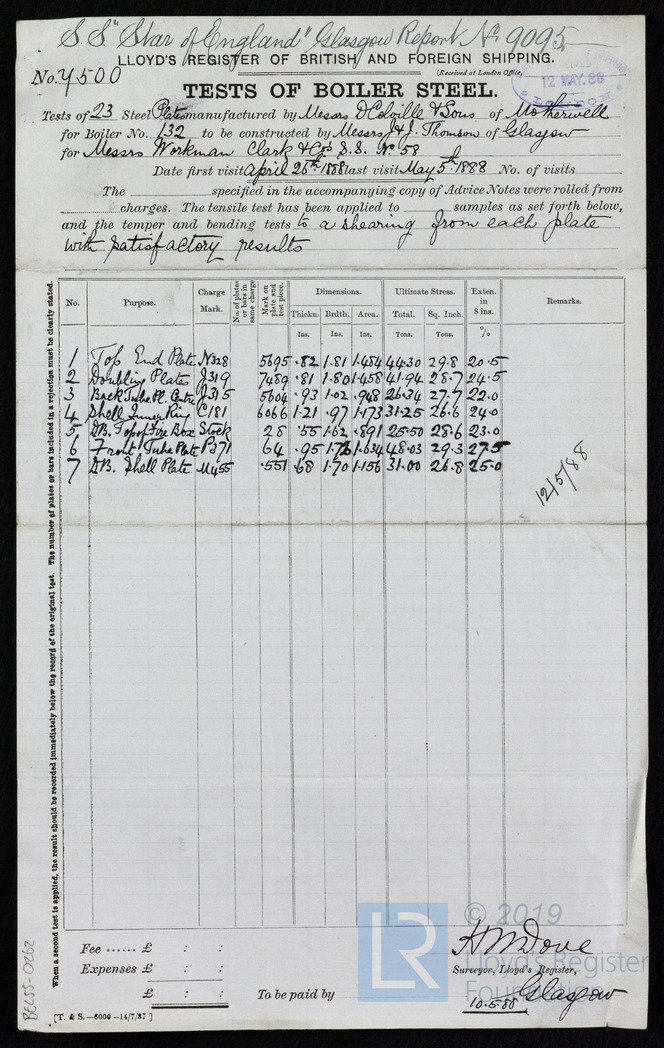 S.S. "Star of England" Glasgow Report No. 9095
LLOYD'S REGISTER OF BRITISH AND FOREIGN SHIPPING.
No. 4500
(Received at London Office,
12 MAY. 88
TESTS OF BOILER STEEL.
Tests of 23 Steel Plates manufactured by Messrs D Colville & Sons of Motherwell
for Boiler No. 132 to be constructed by Messrs J. & J. Thomson of Glasgow
for Messrs Workman Clark & Co's S.S. No. 58
Date first visit April 26th 1888 last visit May 5th 1888 No. of visits
The specified in the accompanying copy of Advice Notes were rolled from
charges. The tensile test has been applied to samples as set forth below,
and the temper and bending tests to a shearing from each plate
with satisfactory results
No. Purpose. Charge Mark. No. of plates or bars in same charge Mark on plate and test piece. Dimensions. Ultimate Stress. Exten. in 8 ins. Remarks.
Thickn. Brdth. Area. Total. Sq. Inch.
Ins. Ins. Ins. Tons. Tons. %
1 Top End Plate N328 5695 .82 1.81 1.484 44.30 29.8 20.5
2 Doubling Plates J319 7489 .81 1.80 1.458 41.94 28.7 24.5
3 Back Tube Pl. Centre J315 5604 .93 1.02 .948 26.34 27.7 22.0
4 Shell Inner Ring C181 6066 1.21 .97 1.173 31.25 26.6 24.0
5 DB. Top of Fire Box Stock 28 .55 1.62 .891 25.50 28.6 23.0
6 Front Tube Plate P371 64 .95 1.72 1.634 48.03 29.3 27.5
7 DB. Shell Plate M455 .551 .68 1.70 1.156 31.00 26.8 25.0
12/5/88
When a second test is applied, the result should be recorded immediately below the record of the original test. The number of plates or bars included in a rejection must be clearly stated.
Fee ...... £ : :
Expenses £ : :
£ : :
To be paid by
H M Dove
Surveyor, Lloyd's Register,
Glasgow
10.5.88
[T. & S.—6000—14/7/87]
BOX55-0262
LR
© 2019
Lloyd's Register
Foundation